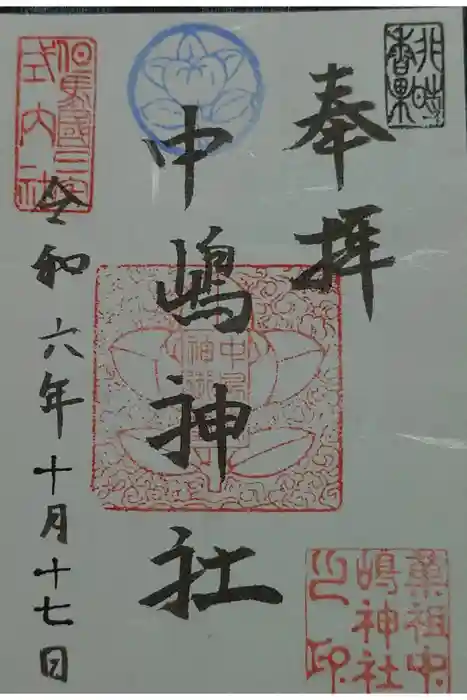 非時
香果
奉拝
菓祖中
嶋神社
之印
中嶋神社
但馬國三宅
式内社
令和六年十月十七日